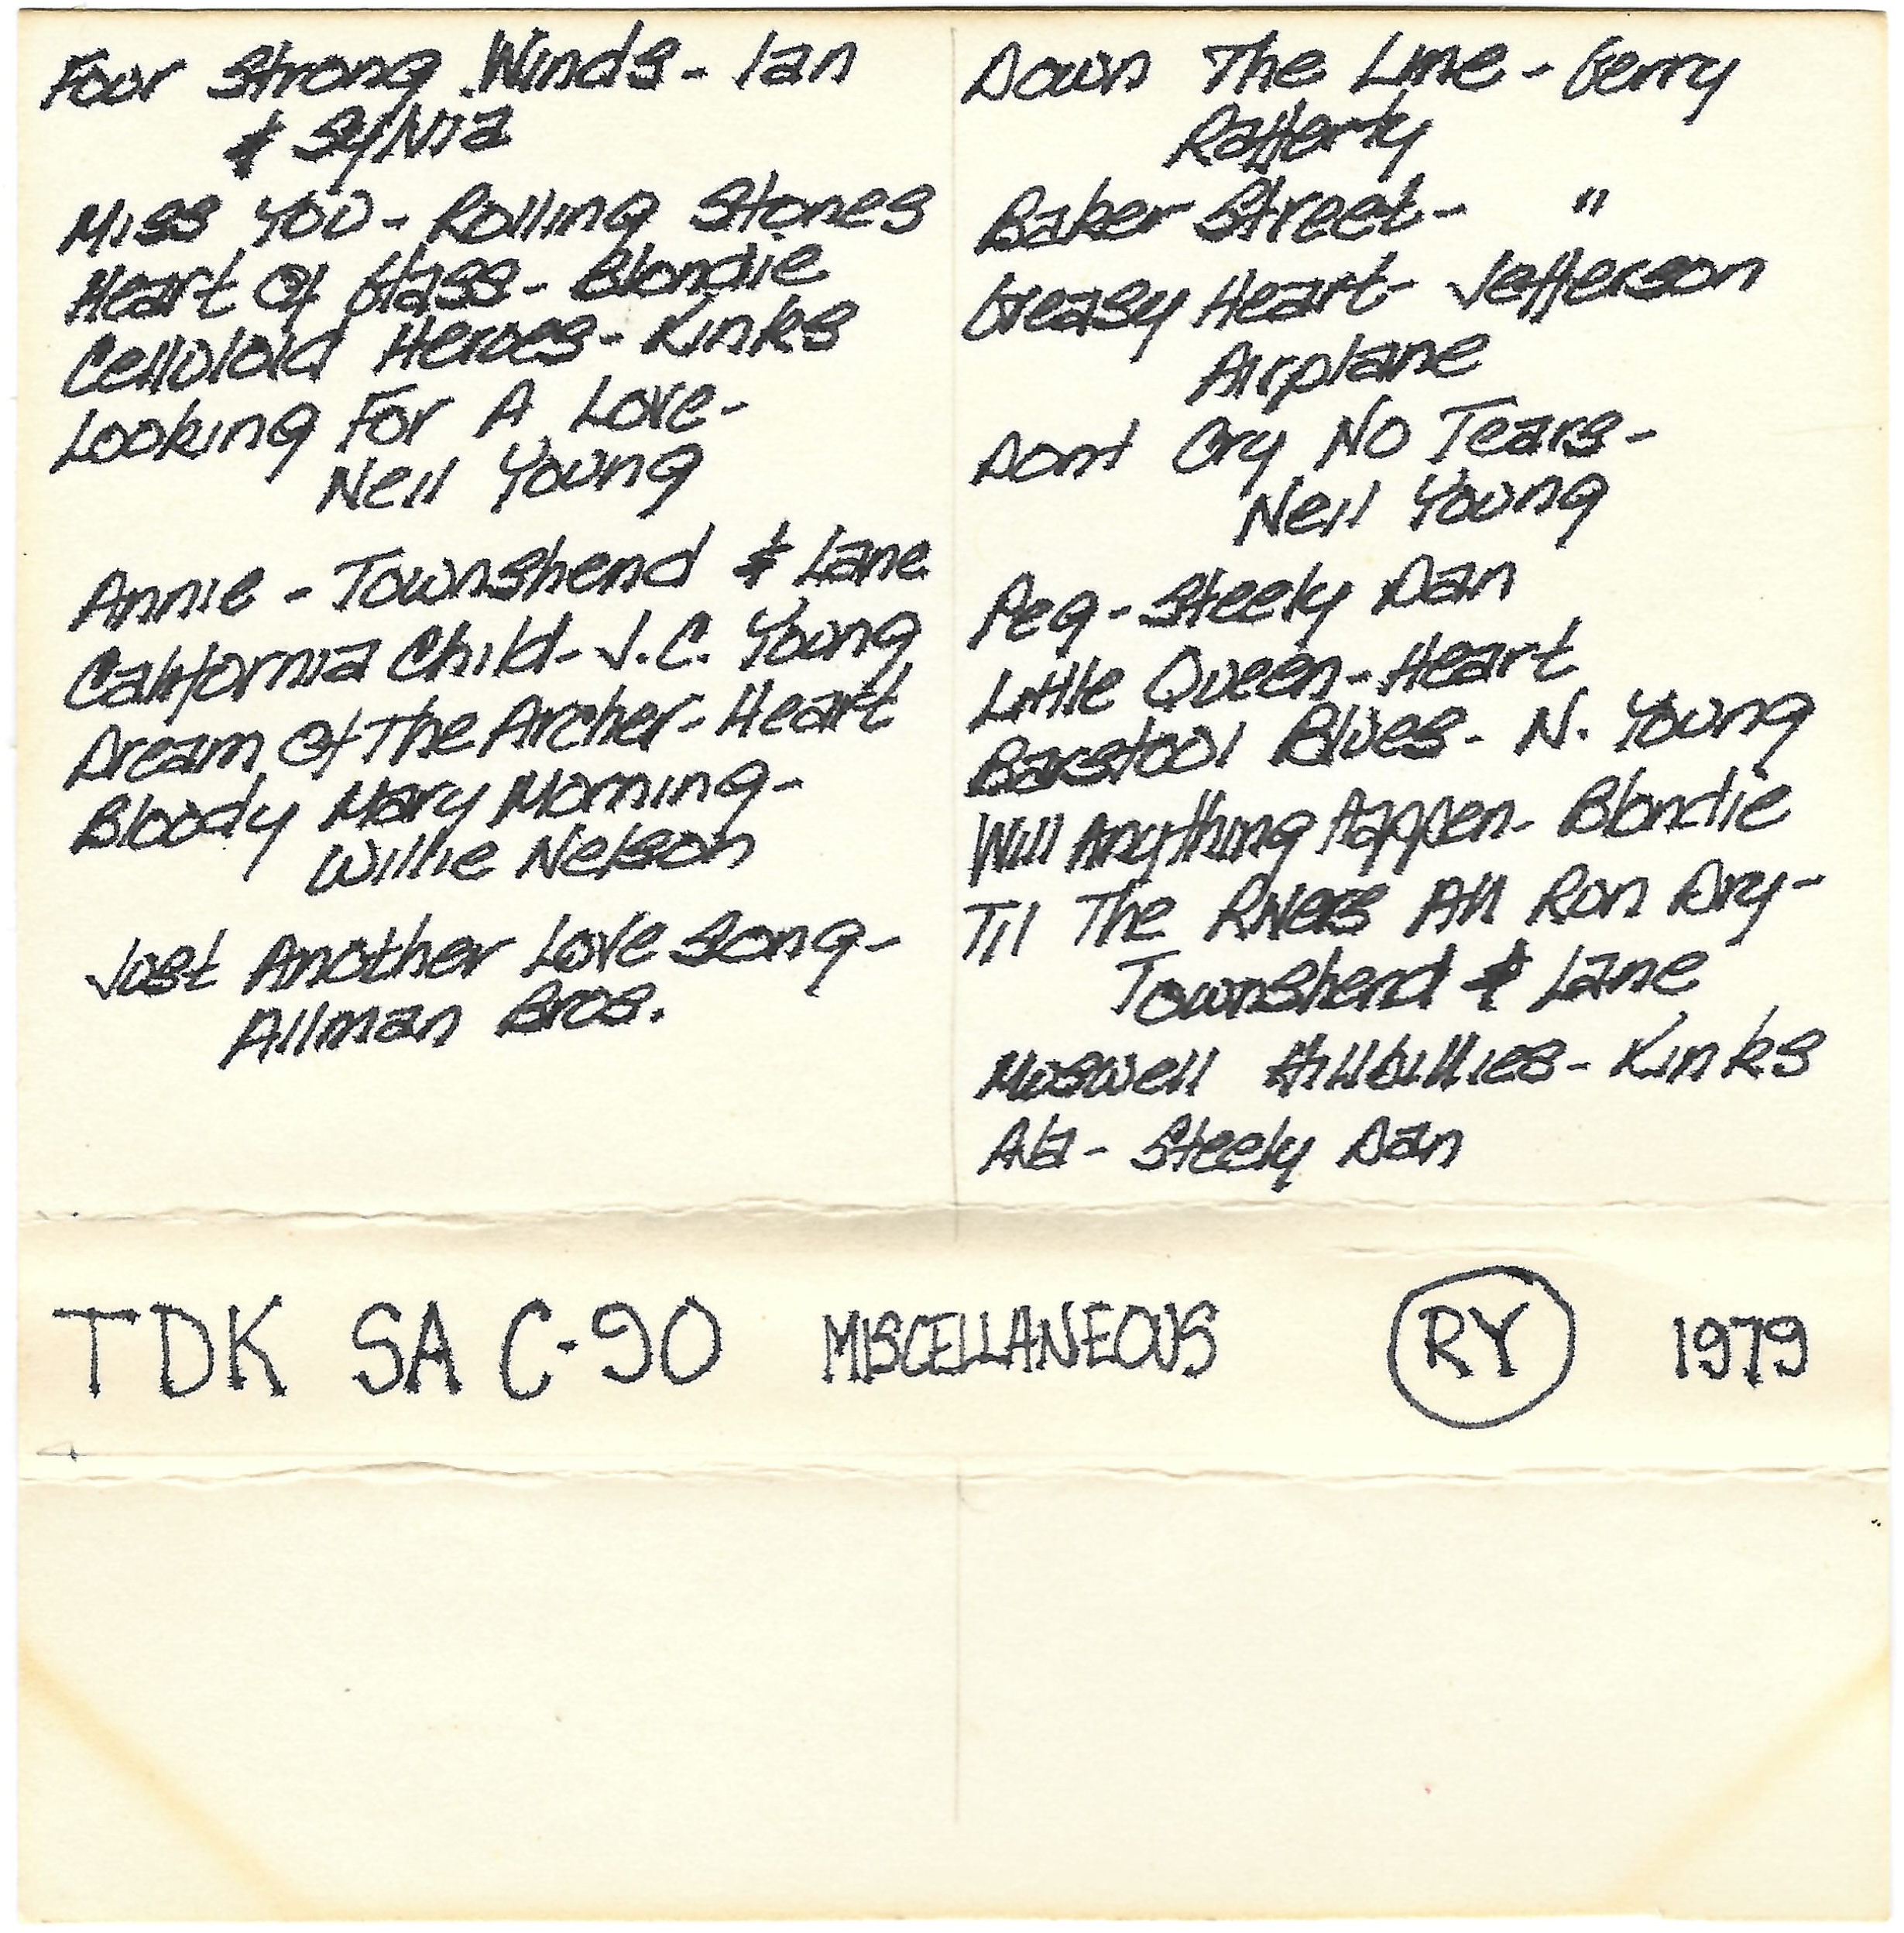 Four Strong Winds - Ian
& Sylvia
Miss You - Rolling Stones
Heart Of Glass - Blondie
Celluloid Heroes - Kinks
Looking For A Love -
Neil Young
Annie - Townshend & Lane
California Child - J.C. Young
Dream Of The Archer - Heart
Bloody Mary Morning -
Willie Nelson
Just Another Love Song -
Allman Bros.
Down The Line - Gerry
Rafferty
Baker Street - "
Greasy Heart - Jefferson
Airplane
Dont Cry No Tears -
Neil Young
Peg - Steely Dan
Little Queen - Heart
Barstool Blues - N. Young
Will Anything Happen - Blondie
Til The Rivers All Run Dry -
Townshend & Lane
Muswell Hillbillies - Kinks
Aja - Steely Dan
TDK SA C-90 MISCELLANEOUS RY 1979